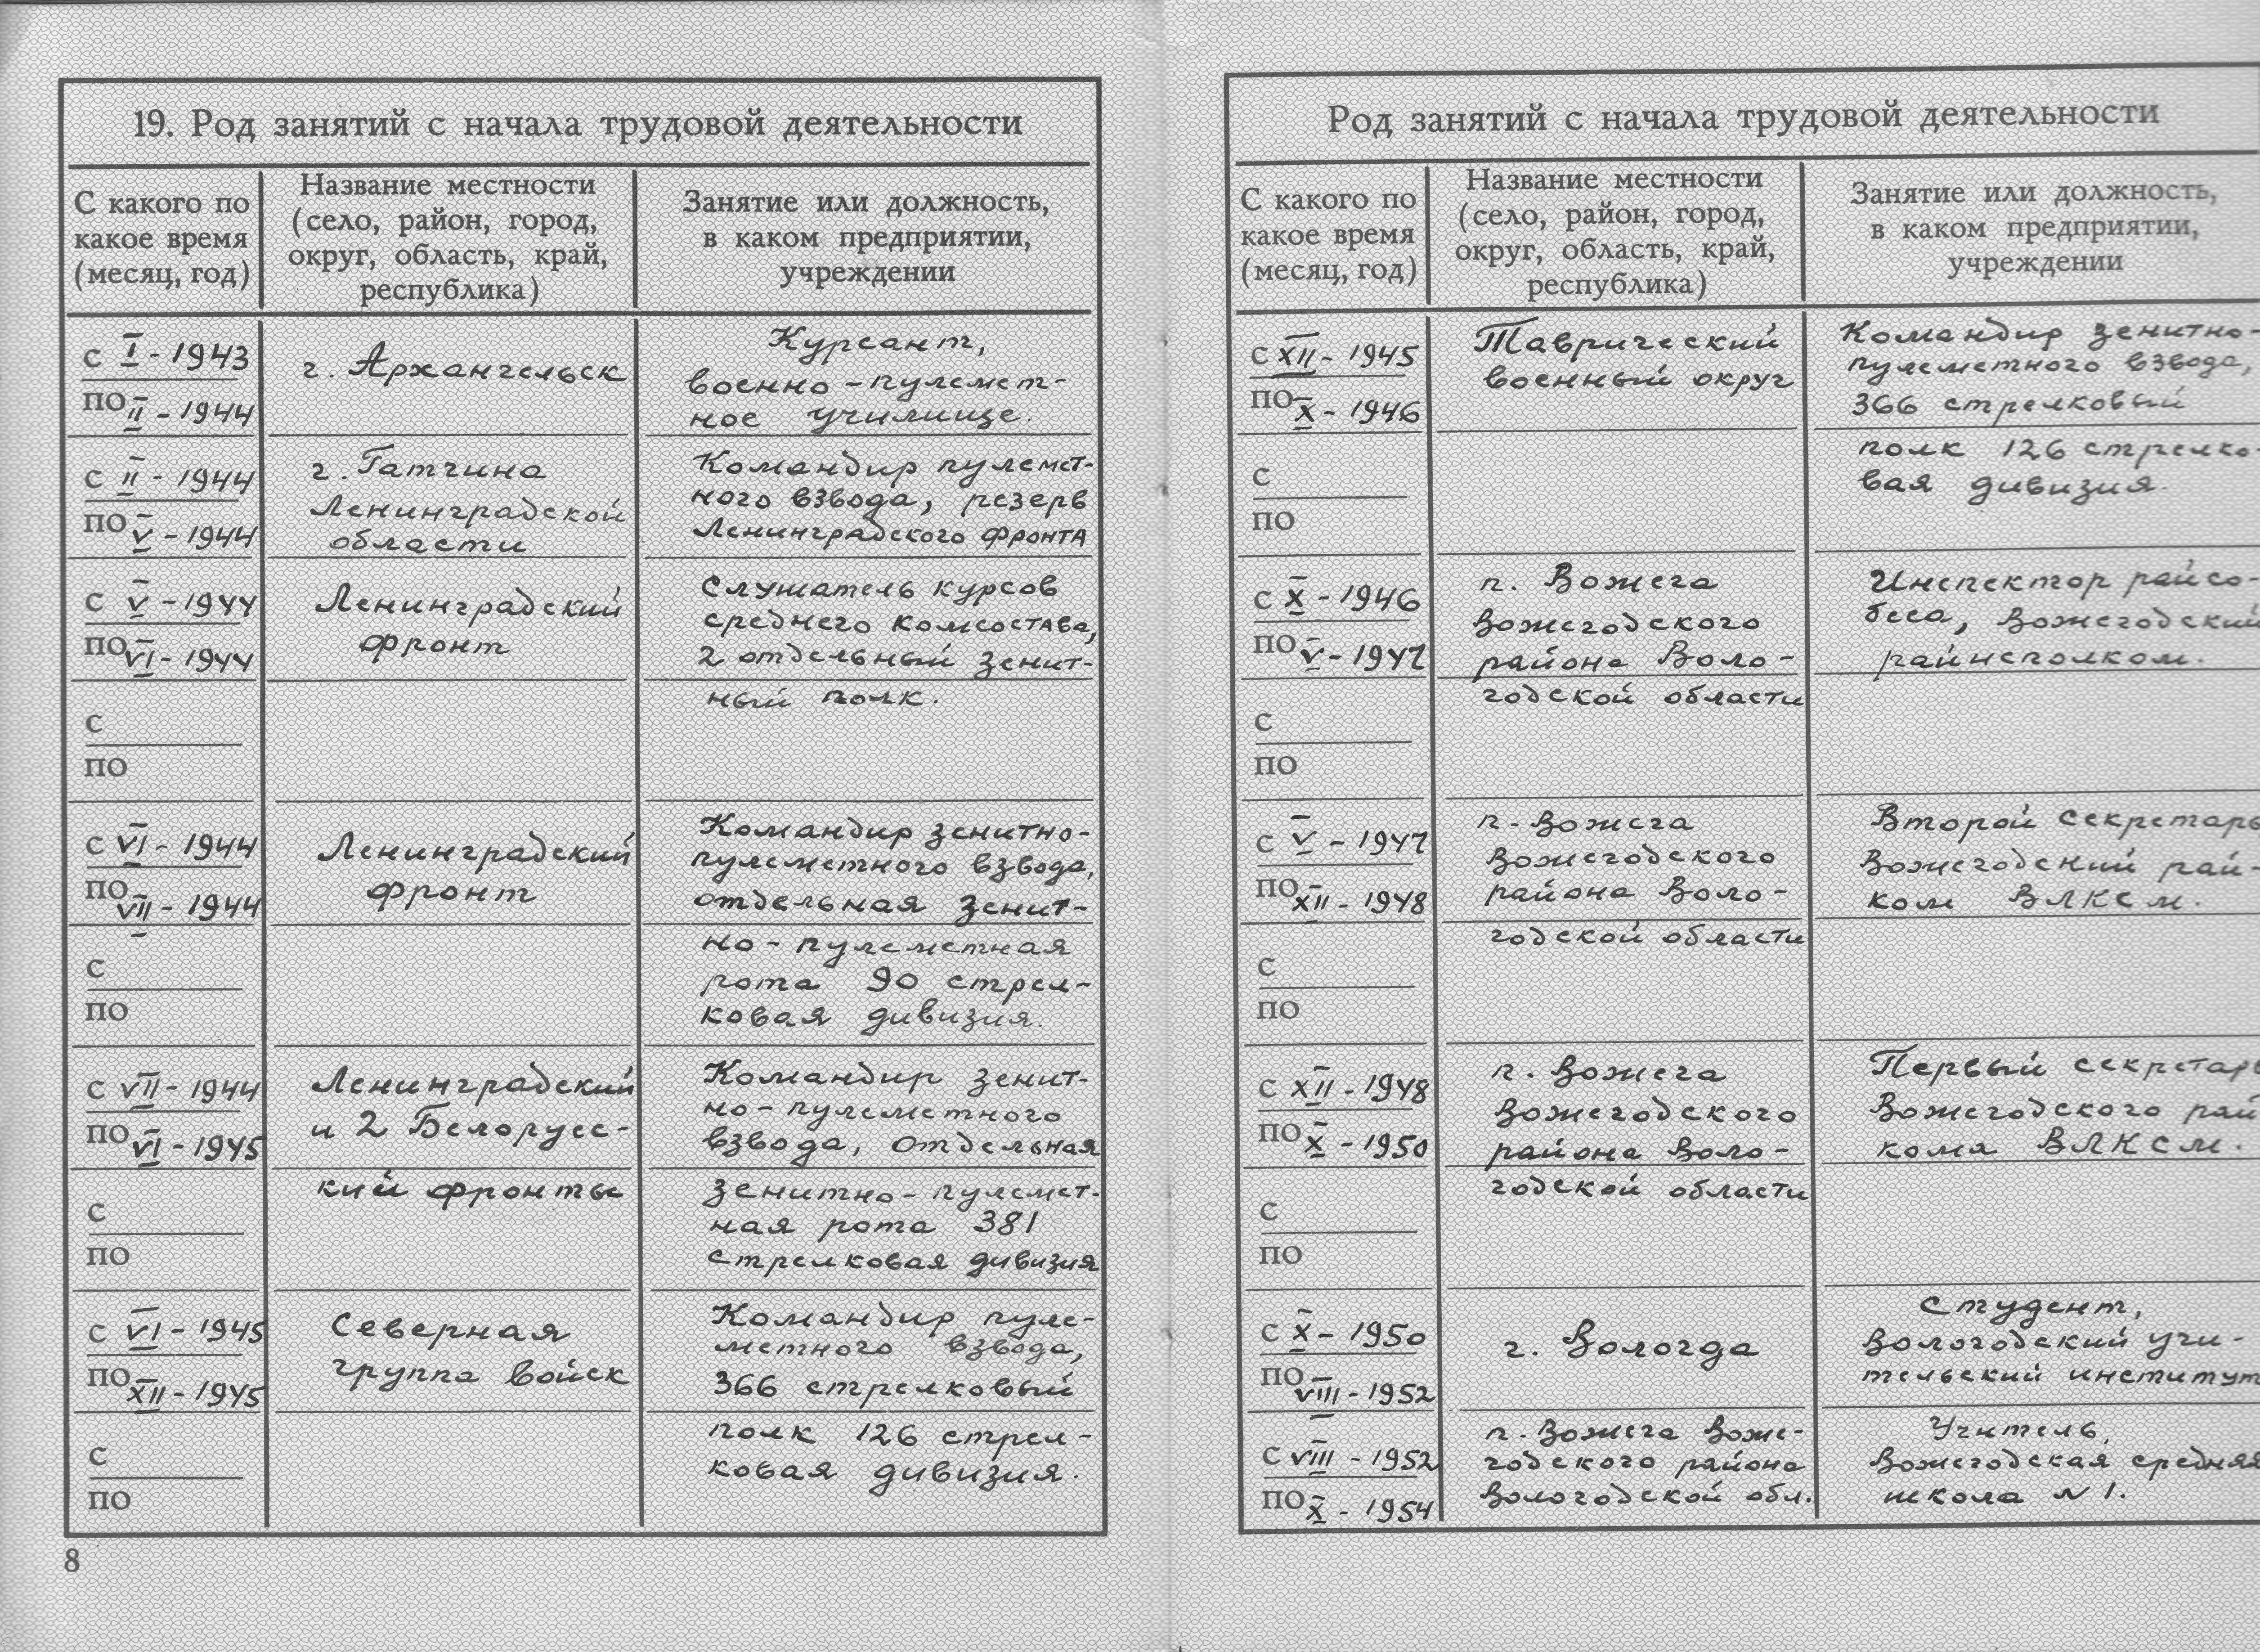 19. Род занятий с начала трудовой деятельности
С какого по
какое время
(месяц, год)
Название местности
(село, район, город,
округ, область, край,
республика)
Занятие или должность,
в каком предприятии,
учреждении
с I - 1943
по II - 1944
г. Архангельск
Курсант,
военно - пулемет-
ное училище.
с II - 1944
по V - 1944
г. Гатчина
Ленинградской
области
Командир пулемет-
ного взвода, резерв
Ленинградского фронта
с V - 1944
по VI - 1944
Ленинградский
фронт
Слушатель курсов
среднего комсостава,
2 отдельный зенит-
ный полк.
с
по
с VI - 1944
по VII - 1944
Ленинградский
фронт
Командир зенитно-
пулеметного взвода,
отдельная зенит-
но - пулеметная
рота 90 стрел-
ковая дивизия.
с
по
с VII - 1944
по VI - 1945
Ленинградский
и 2 Белорусс-
кий фронты
Командир зенит-
но - пулеметного
взвода, отдельная
зенитно - пулемет-
ная рота 381
стрелковая дивизия
с
по
с VI - 1945
по XII - 1945
Северная
группа войск
Командир пуле-
метного взвода,
366 стрелковый
полк 126 стрел-
ковая дивизия.
с
по
8
Род занятий с начала трудовой деятельности
С какого по
какое время
(месяц, год)
Название местности
(село, район, город,
округ, область, край,
республика)
Занятие или должность,
в каком предприятии,
учреждении
с XII - 1945
по X - 1946
Таврический
военный округ
Командир зенитно-
пулеметного взвода,
366 стрелковый
полк 126 стрелко-
вая дивизия.
с
по
с X - 1946
по V - 1947
п. Вожега
Вожегодского
района Воло-
годской области
Инспектор райсо-
беса, Вожегодский
райисполком.
с
по
с V - 1947
по XII - 1948
п. Вожега
Вожегодского
района Воло-
годской области
Второй секретарь
Вожегодский рай-
ком ВЛКСМ.
с
по
с XII - 1948
по X - 1950
п. Вожега
Вожегодского
района Воло-
годской области
Первый секретарь
Вожегодского рай
кома ВЛКСМ.
с
по
с X - 1950
по VIII - 1952
г. Вологда
Студент,
Вологодский учи-
тельский институт
с VIII - 1952
по X - 1954
п. Вожега Воже-
годского района
Вологодской обл.
Учитель,
Вожегодская средняя
школа N 1.